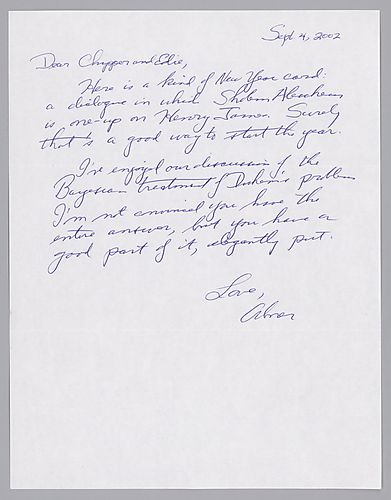 Sept. 4, 2002
Dear Chipper and Edie,
Here is a kind of New Year card:
a dialogue in which Sholem Aleichem
is one-up on Henry James. Surely
that's a good way to start the year.
I've enjoyed our discussion of the
Bayesian treatment of Duhem's problem
I'm not convinced you have the
entire answer, but you have a
good part of it, elegantly put.
Love,
Abner